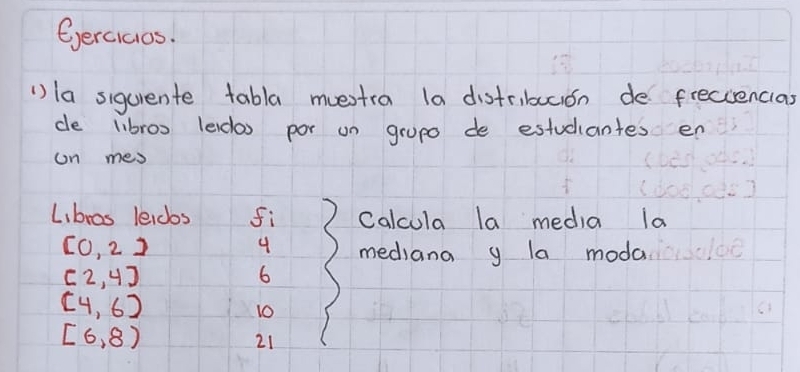 Ejercicios.
1) la siguiente tabla muestra la distribución de frecuencias
de libros leidos por un grupo de estudiantes en
un mes
Libros leidos fi
[0,2) 4
[2,4) 6
[4,6) 10
[6,8) 21
Calcula la media la
mediana y la moda